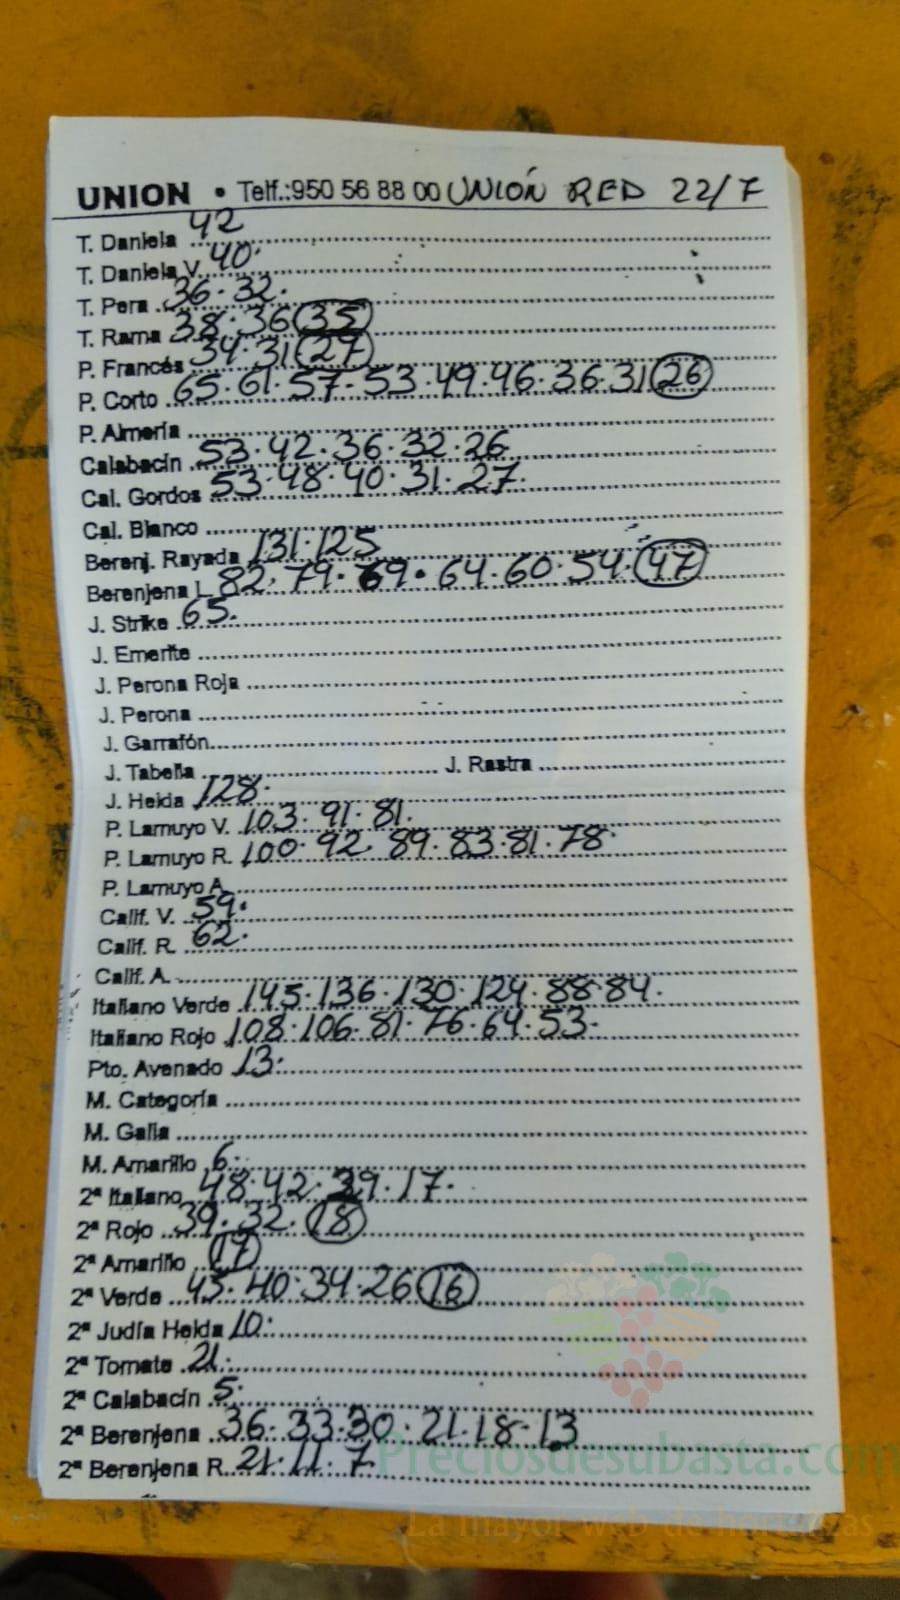 UNION • Telf.:950 56 88 00 UNIÓN RED 22/7
T. Daniela 42
T. Daniela V. 40.
T. Pera 36.32.
T. Rama 38.36 35
P. Francés 34.31 27
P. Corto 65.61.57.53.49.46.36.31 26
P. Almería
Calabacín 53.42.36.32.26
Cal. Gordos 53.48.40.31.27.
Cal. Blanco
Berenj. Rayada 131.125
Berenjena L. 82.79.69.64.60.54.47
J. Strike 65.
J. Emerite
J. Perona Roja
J. Perona
J. Garrafón
J. Tabella J. Rastra
J. Helda 128.
P. Lamuyo V. 103.91.81.
P. Lamuyo R. 100.92.89.83.81.78.
P. Lamuyo A.
Calif. V. 59.
Calif. R. 62.
Calif. A.
Italiano Verde 145.136.130.124.88.84.
Italiano Rojo 108.106.81.76.64.53.
Pto. Avenado 13.
M. Categoría
M. Galia
M. Amarillo 6.
2ª Italiano 48.42.39.17.
2ª Rojo 39.32.18
2ª Amarillo 17
2ª Verde 45.40.34.26 16
2ª Judía Helda 10.
2ª Tomate 21.
2ª Calabacín 5.
2ª Berenjena 36.33.30.21.18.13
2ª Berenjena R. 21.11.7
Preciosdesubasta.com
La mayor web de hortalizas